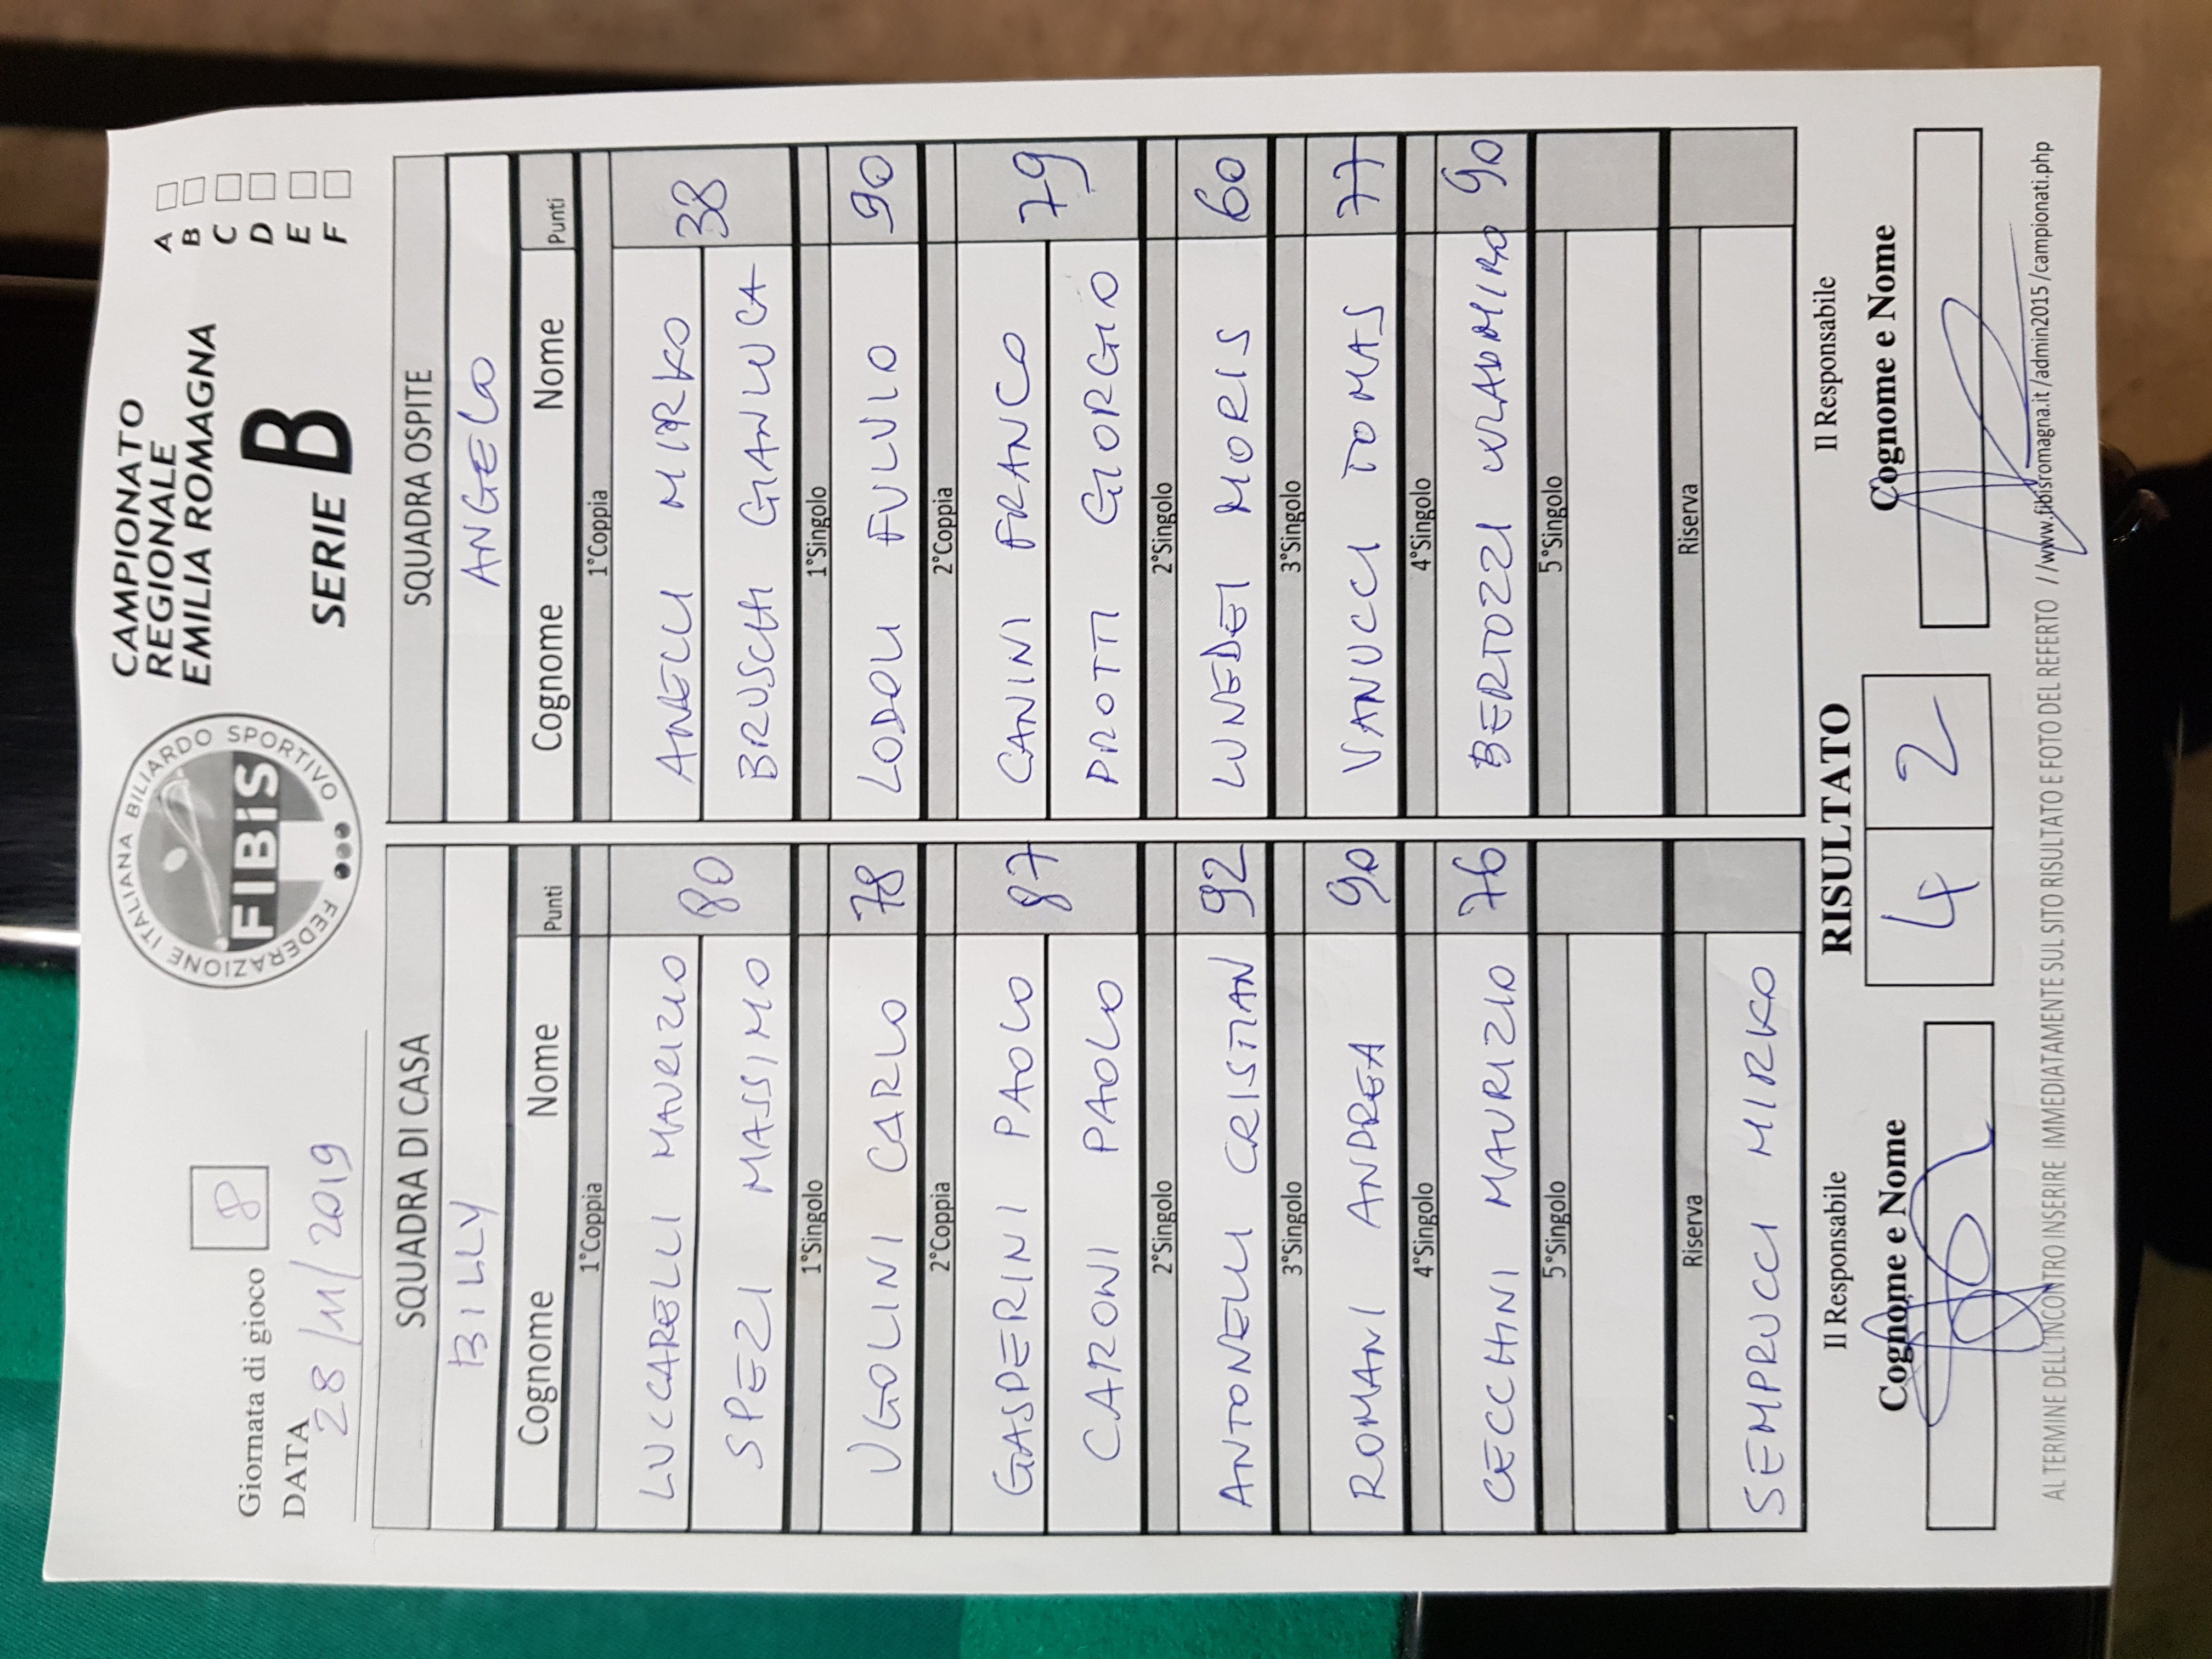 Giornata di gioco 8
DATA 28/11/2019
FEDERAZIONE ITALIANA BILIARDO SPORTIVO
FIBiS
CAMPIONATO
REGIONALE
EMILIA ROMAGNA
SERIE B
A
B
C
D
E
F
SQUADRA DI CASA
BILLY
Cognome Nome Punti
1°Coppia
LUCCARELLI MAURIZIO
80
SPEZI MASSIMO
1°Singolo
UGOLINI CARLO 78
2°Coppia
GASPERINI PAOLO
87
CARONI PAOLO
2°Singolo
ANTONELLI CRISTIAN 92
3°Singolo
ROMANI ANDREA 90
4°Singolo
CECCHINI MAURIZIO 76
5°Singolo
Riserva
SEMPRUCCI MIRKO
SQUADRA OSPITE
ANGELO
Cognome Nome Punti
1°Coppia
ANELLI MIRKO
38
BRUSCHI GIANLUCA
1°Singolo
LODOLI FULVIO 90
2°Coppia
CANINI FRANCO
79
PROTTI GIORGIO
2°Singolo
LUNEDEI MORIS 60
3°Singolo
VANUCCI TOMAS 77
4°Singolo
BERTOZZI WLADMIRO 90
5°Singolo
Riserva
Il Responsabile
Cognome e Nome
RISULTATO
4 2
Il Responsabile
Cognome e Nome
AL TERMINE DELL'INCONTRO INSERIRE IMMEDIATAMENTE SUL SITO RISULTATO E FOTO DEL REFERTO //www.fibisromagna.it/admin2015/campionati.php